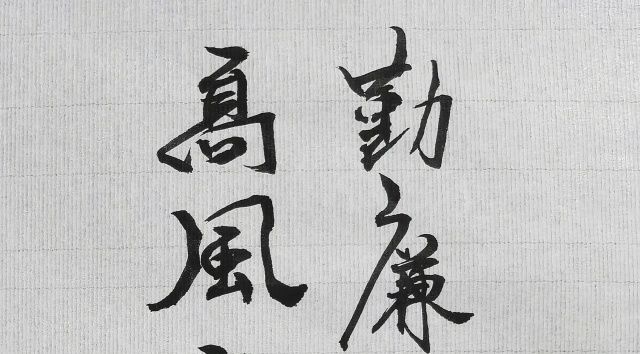 勤廉
高風